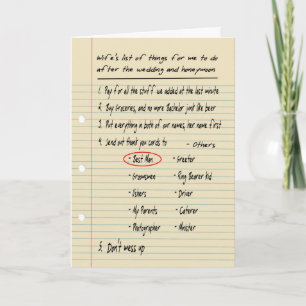 Wife's list of things for me to do
after the wedding and honeymoon
1. Pay for all the stuff we added at the last minute
2. Buy Groceries, and no more Bachelor just like beer
3. Put everything in both of our names, her name first
4. Send out thank you cards to - Others
- Best Man - Greeter
- Groomsmen - Ring Bearer kid
- Ushers - Driver
- My Parents - Caterer
- Photographer - Minister
5. Don't mess up